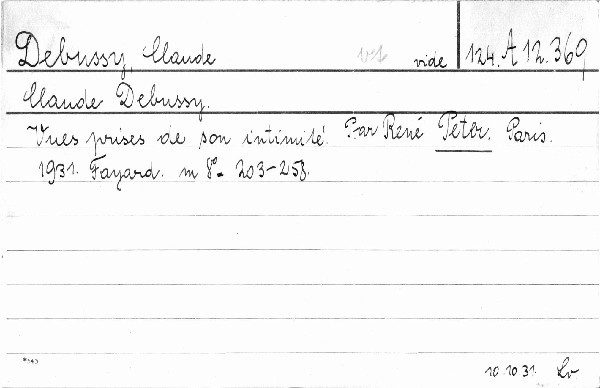 Debussy, Claude vide 124.A 12.369
Claude Debussy.
Vues prises de son intimité. Par René Peter. Paris.
1931. Fayard. m 8°. 203-258.
10.10.31. Lv